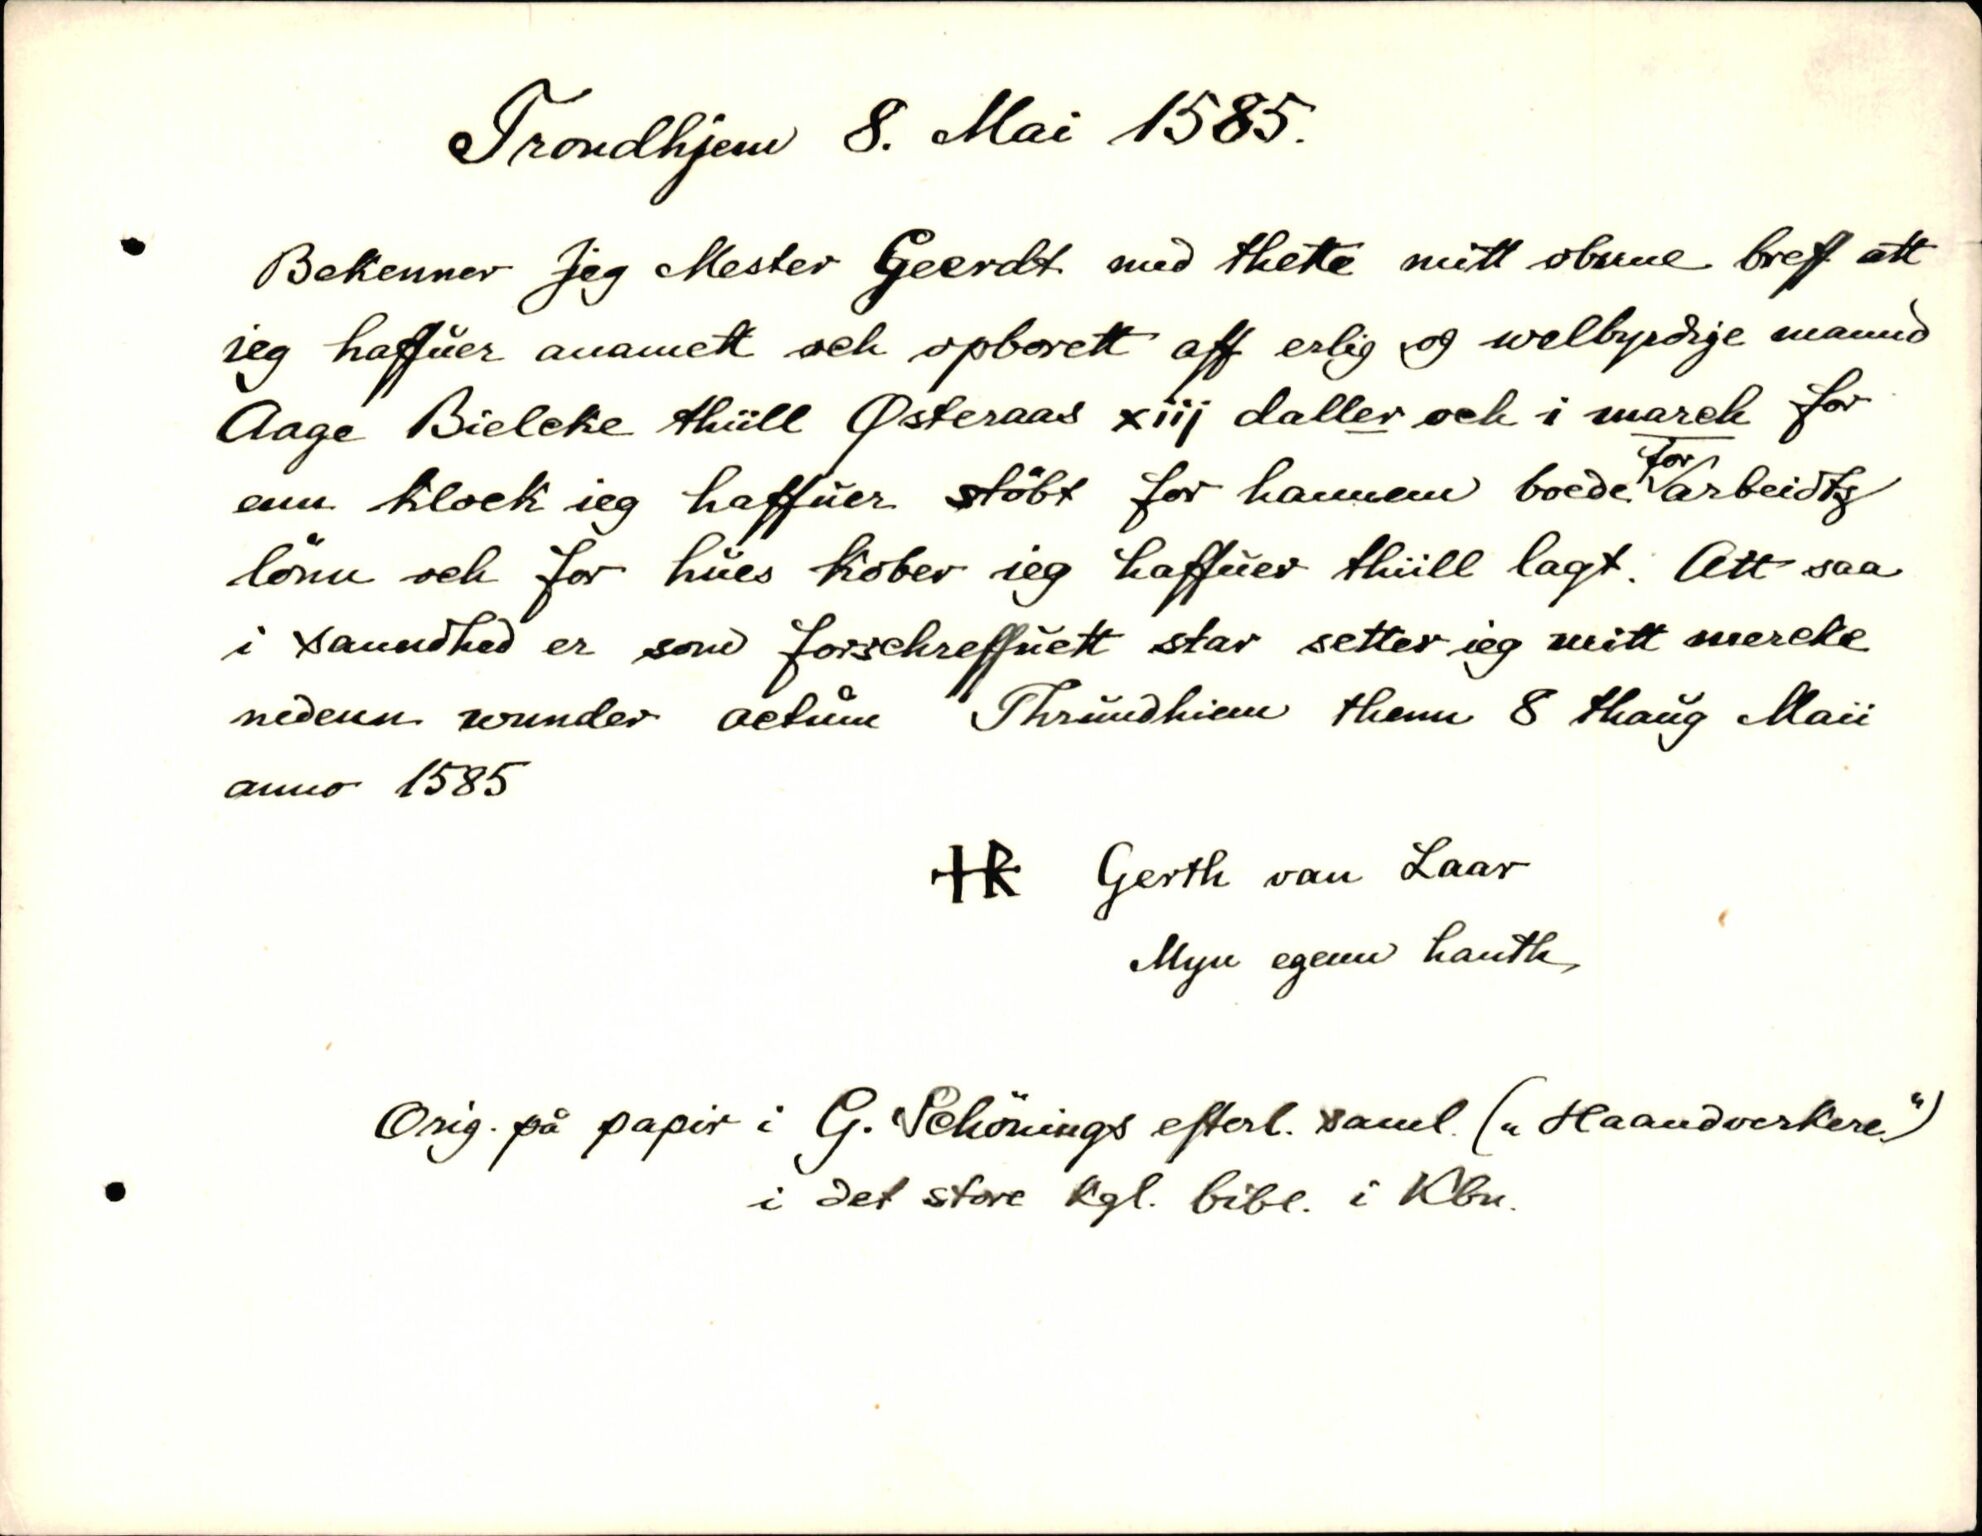 Trondhjem 8. Mai 1585.
Bekenner Jeg Mester Geerdt med thette mitt obnne breff att
ieg haffŭer anamett och opborett aff erlig og welbyrdige mannd
Aage Bielcke thiill Østeraas xiij daller och i march for
enn klock ieg haffŭer støbt for hannem boede for arbeidtz
lönn och for hŭes kober ieg haffŭer thiill lagt. Att saa
i sanndhed er som forschreffŭett star setter ieg mitt mercke
nedenn wunder actŭm Thrŭndhiem thenn 8 thaŭg Maii
anno 1585
HR Gerth van Laar
Myn egenn hanth
Orig. på papir i G. Schönings efterl. saml. („Haandverkere“)
i det store kgl. bibl. i Kbn.